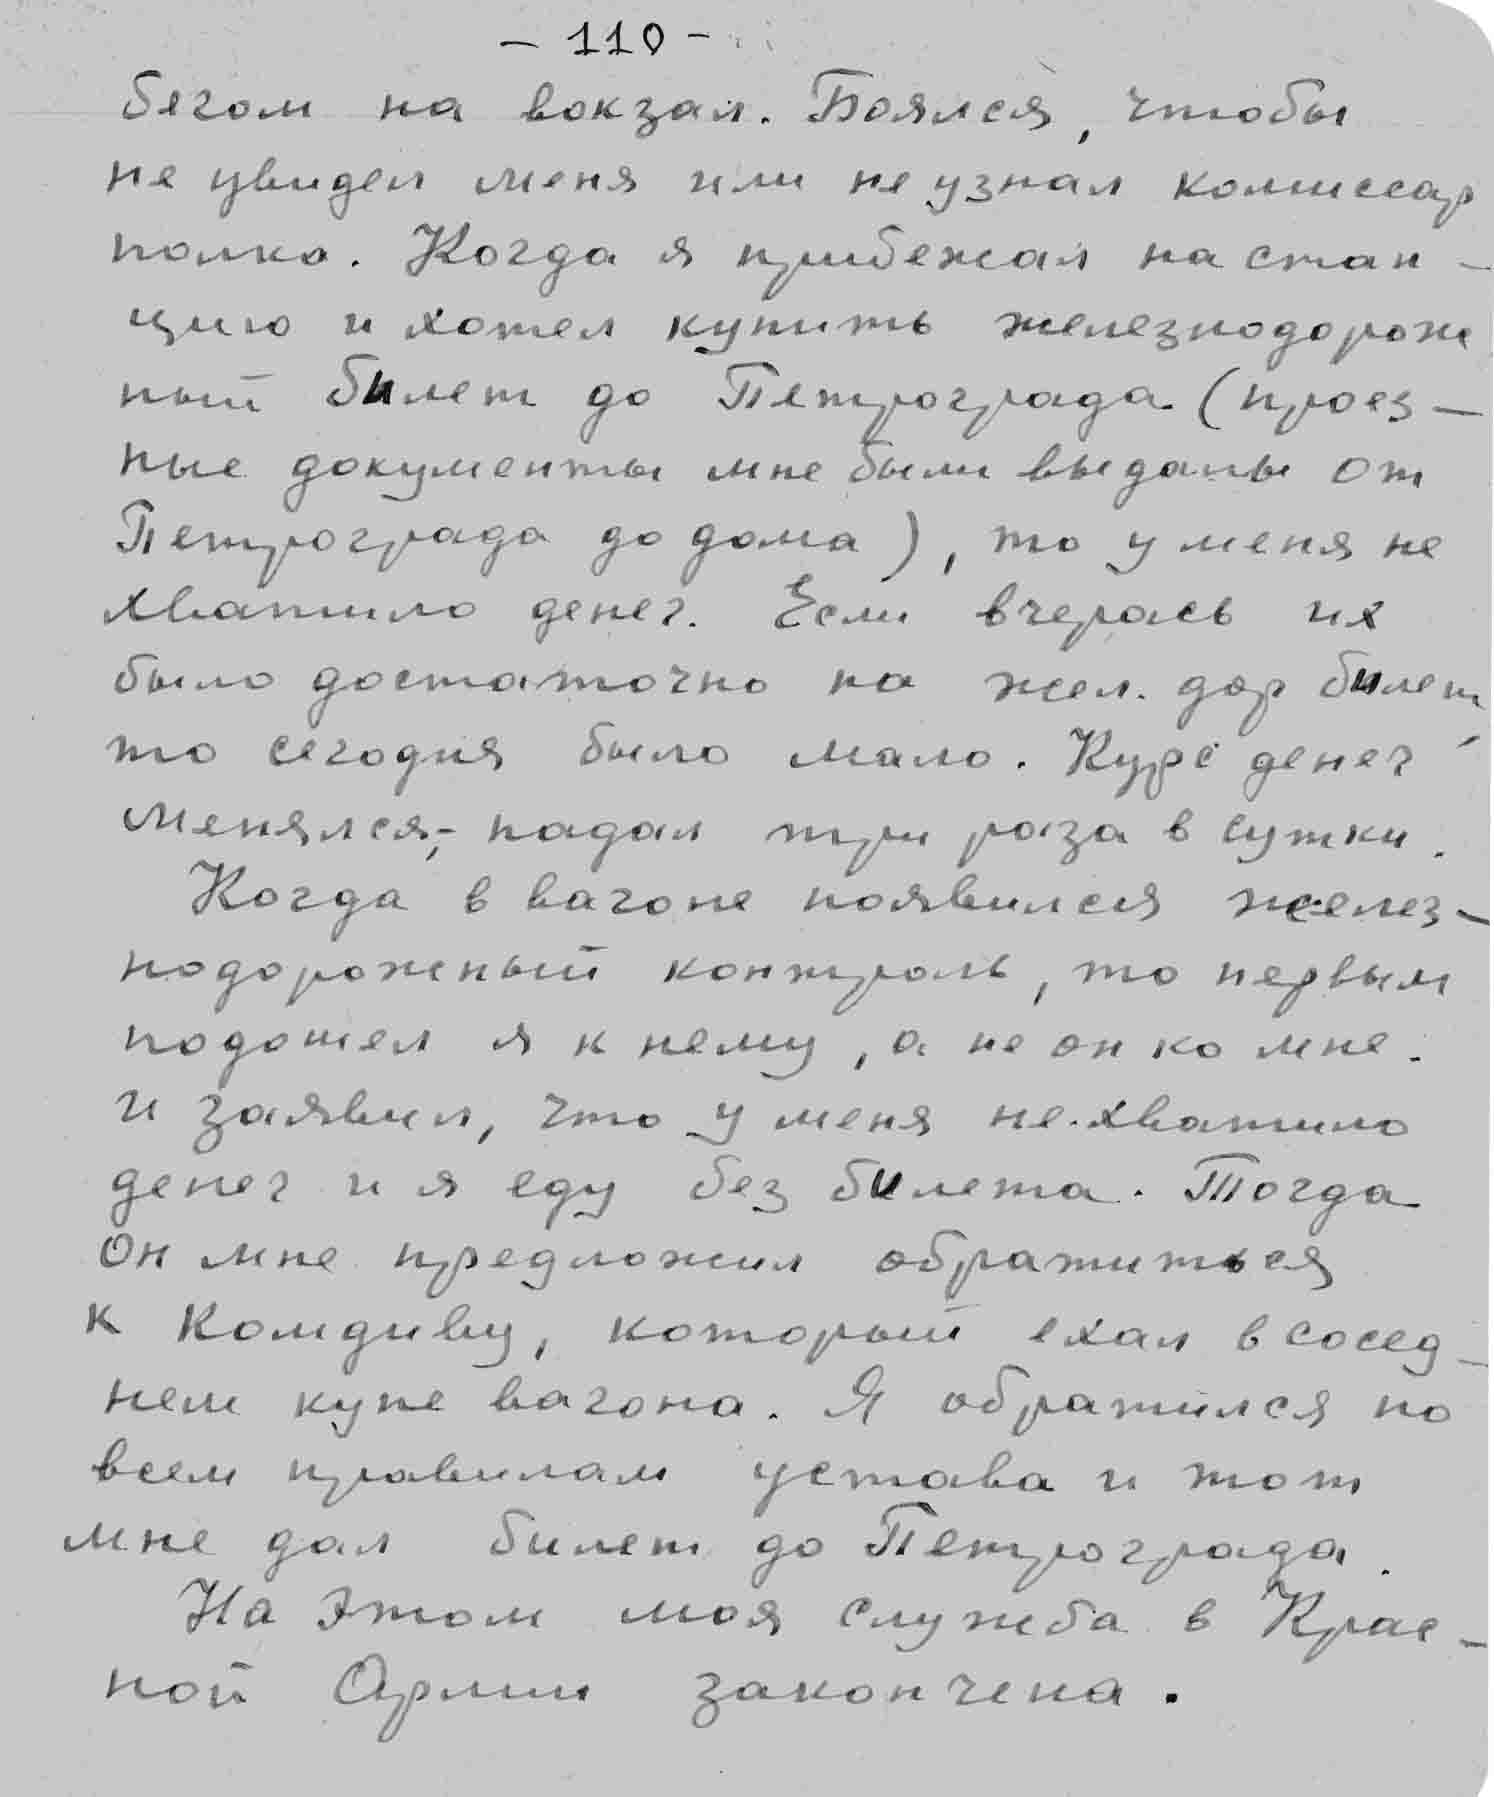 - 110 -
бегом на вокзал. Боялся, чтобы
не увидел меня или не узнал комиссар
полка. Когда я прибежал на стан-
цию и хотел купить железнодорож
ный билет до Петрограда (проез-
ные документы мне были выданы от
Петрограда до дома), то у меня не
хватило денег. Если вчерась их
было достаточно на жел. дор билет,
то сегодня было мало. Курс денег
менялся,- падал три раза в сутки.
Когда в вагоне появился желез-
нодорожный контроль, то первым
подошел я к нему, а не он ко мне.
и заявил, что у меня не хватило
денег и я еду без билета. Тогда
он мне предложил обратиться
к Комдиву, который ехал в сосед-
нем купе вагона. Я обратился по
всем правилам устава и тот
мне дал билет до Петрограда.
На этом моя служба в Крас-
ной Армии закончена.